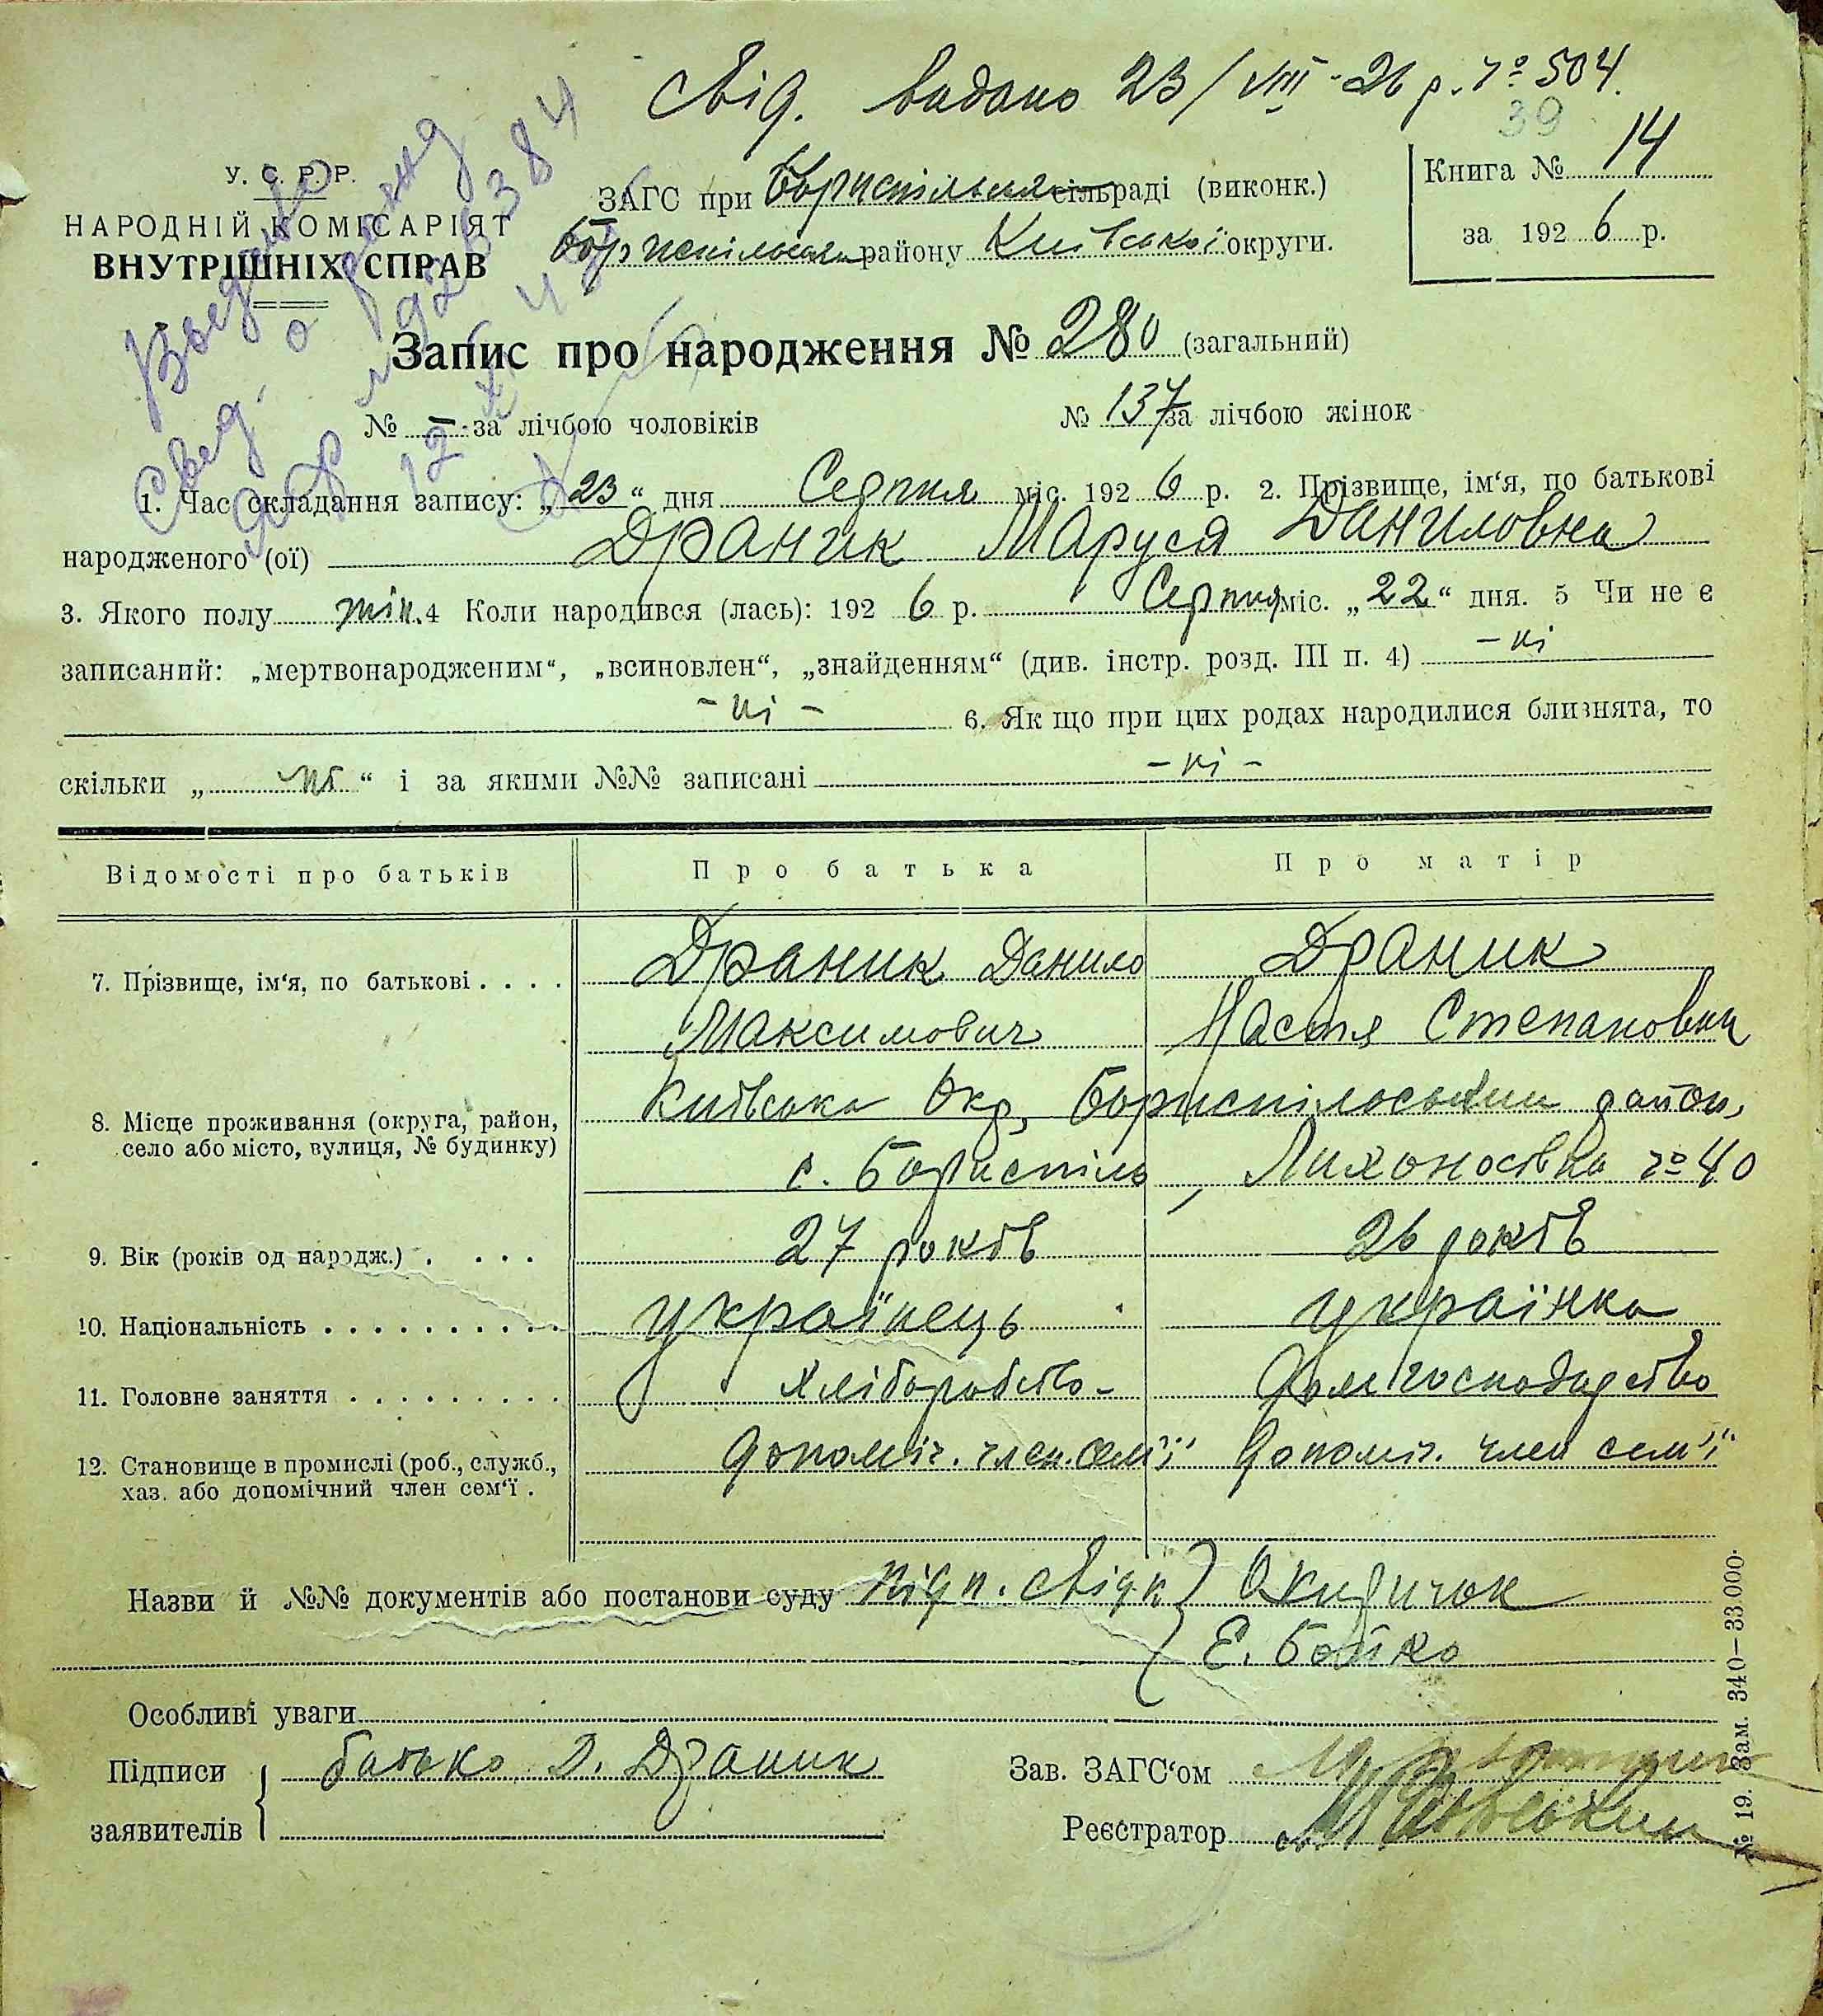 Свід. видано 23/VIII-26 р. № 504.
39
У. С. Р. Р.
НАРОДНІЙ КОМІСАРІЯТ
ВНУТРІШНІХ СПРАВ
ЗАГС при Бориспільськ сільраді (виконк.)
Бориспільськ району Київської округи.
Книга № 14
за 192 6 р.
Запис про народження № 280 (загальний)
№ – за лічбою чоловіків № 137 за лічбою жінок
1. Час складання запису: „23“ дня Серпня міс. 192 6 р. 2. Прізвище, ім‘я, по батькові
народженого (ої) Драник Маруся Даниловна
3. Якого полу жін. 4 Коли народився (лась): 192 6 р. Серпня міс. „22“ дня. 5 Чи не є
записаний: „мертвонародженим“, „всиновлен“, „знайденням“ (див. інстр. розд. III п. 4) – ні
– ні – 6. Як що при цих родах народилися близнята, то
скільки „ ні “ і за якими №№ записані – ні –
Відомості про батьків Про батька Про матір
7. Прізвище, ім‘я, по батькові . . . . Драник Данило Драник
Максимович Настя Степановна
8. Місце проживання (округа, район, село або місто, вулиця, № будинку) Київська Окр, Бориспільський район,
с. Бориспіль, Лихоносівка № 40
9. Вік (років од народж.) . . . . 27 років 26 років
10. Національність . . . . . . . . . . українець українка
11. Головне заняття . . . . . . . . . Хліборобство- Дом господарство
12. Становище в промислі (роб., служб., хаз. або допомічний член сем‘ї . допоміч. член. сем'ї допоміч. член сем'ї
Назви й №№ документів або постанови суду підп. свідк } Окидчок
Е. Бойко
Особливі уваги
Підписи заявителів { батько Д. Драник
Зав. ЗАГС‘ом
Реєстратор
№ 19. Зам. 340–33.000.